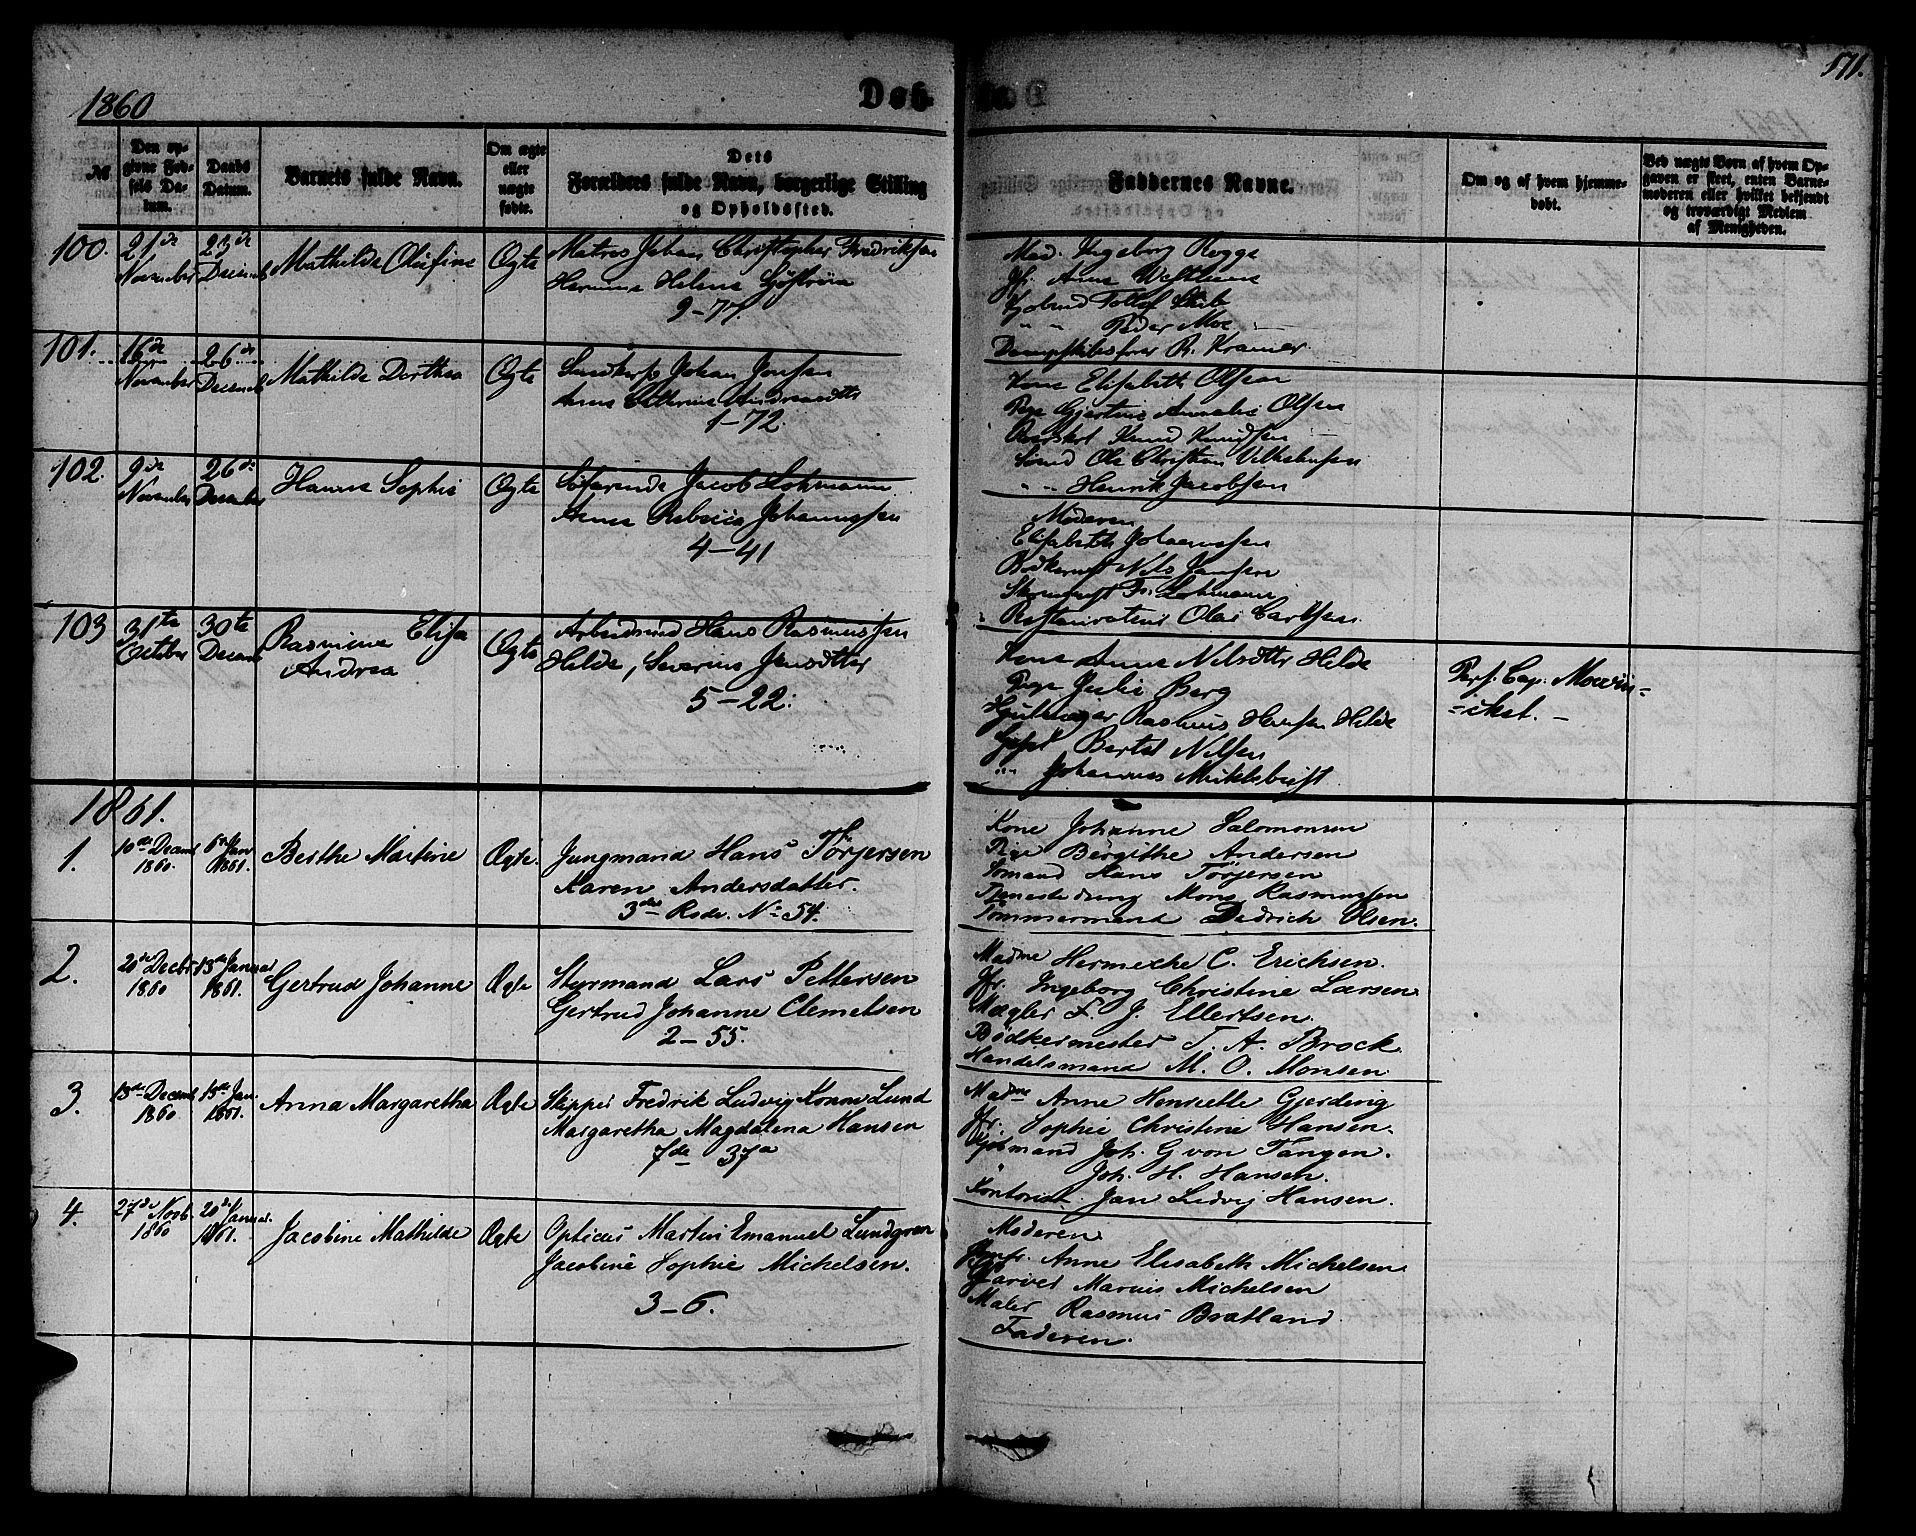 1860
Døb
571.
№
Den op-
givne Fød-
sels Da-
tum.
Daabs
Datum.
Barnets fulde Navn.
Om ægte
eller
uægte
fødte.
Dets
Forældres fulde Navn, borgerlige Stilling
og Opholdssted.
Faddernes Navne.
Om og af hvem hjemme-
døbt.
Ved uægte Børn af hvem Op-
gaven er skeet, enten Barne-
moderen eller hvilket bekjendt
og troværdigt Medlem
af Menigheden.
100.
21de
November
23de
Decemb
Mathilde Olufine
Ægte
Matros Johan Christopher Fredriksen
Helene
9-77.
Mad. Ingeborg Rogge
Jfr. Anna
Peder Moe
Dampskibsfører R. Kramer
101.
16de
November
26de
Decemb
Mathilde Dorthea
Ægte
Johan Jonsen
Anne Cathrine Andreasdtr
1-72.
Kone Elisabeth Olsen
Pige Gjertine Annalie Olsen
Knud Knudsen
Sømd Ole Christian Vilhelmsen
" " Henrik Jacobsen
102.
9de
November
26de
December
Hanna Sophie
Ægte
Søfarende Jacob Lohmann
Anna Johannessen
4-41
Moderen
Elisabeth Johannessen
Nils Jansen
Fr. Lohmann
Restaurateur Olai Carlsen
103
31te
October
30te
Decemb
Rasmine Elisa
Andrea
Ægte
Arbeidsmd Hans Rasmussen
Hilde, Severine Jensdtter
5-22.
Kone Anna Nilsdtter Hilde
Pige Julie Berg
Hjulmager Rasmus Hansen Hilde
Bertel Nilsen
" " Johannes
Perf. Cap. Mowin-
-ckel.-
1861.
1.
10de Decemb
1860.
6te Jan
1861.
Berthe Martine
Ægte.
Jungmand Hans Törjersen
Karen Andersdatter.
3die Rode. No 54.
Kone Johanne Salomonsen
Pige Bergithe Andersen
Sömand Hans Törjersen
Tjenestedreng Mons Rasmussen
Tömmermand Didrich Olsen.
2.
20de Decbr
1860
13de Januar
1861.
Gertrud Johanne
Ægte
Styrmand Lars Pettersen
Gertrud Johanne Clemetsen
2-55.
Madme Hermeche C. Erichsen.
Jfr. Ingeborg Christine Larsen
Mægler F. J. Ellertsen.
Bödkermester T. A. Brock
Handelsmand M. O. Monsen
3.
13de Decemb
1860
15de Jan.
1861.
Anna Margaretha
Ægte
Skipper Fredrik Ludvig Konne Lund
Margaretha Magdalena Hansen
7de 37a
Madme Anne Henriette Gjerding
Jfr. Sophie Christine Hansen.
Joh. G von Tangen.
Joh. H. Hansen.
Kontorist. Jan Ludvig Hansen.
4.
27de Novb.
1860
20de Januar.
1861.
Jacobine Mathilde
Ægte
Opticus Martin Emanuel Lundgren
Jacobine Sophie Michelsen.
3-6.
Moderen
Jomfr. Anne Elisabeth Michelsen
Garver Marius Michelsen
Maler Rasmus Bratland
Faderen.